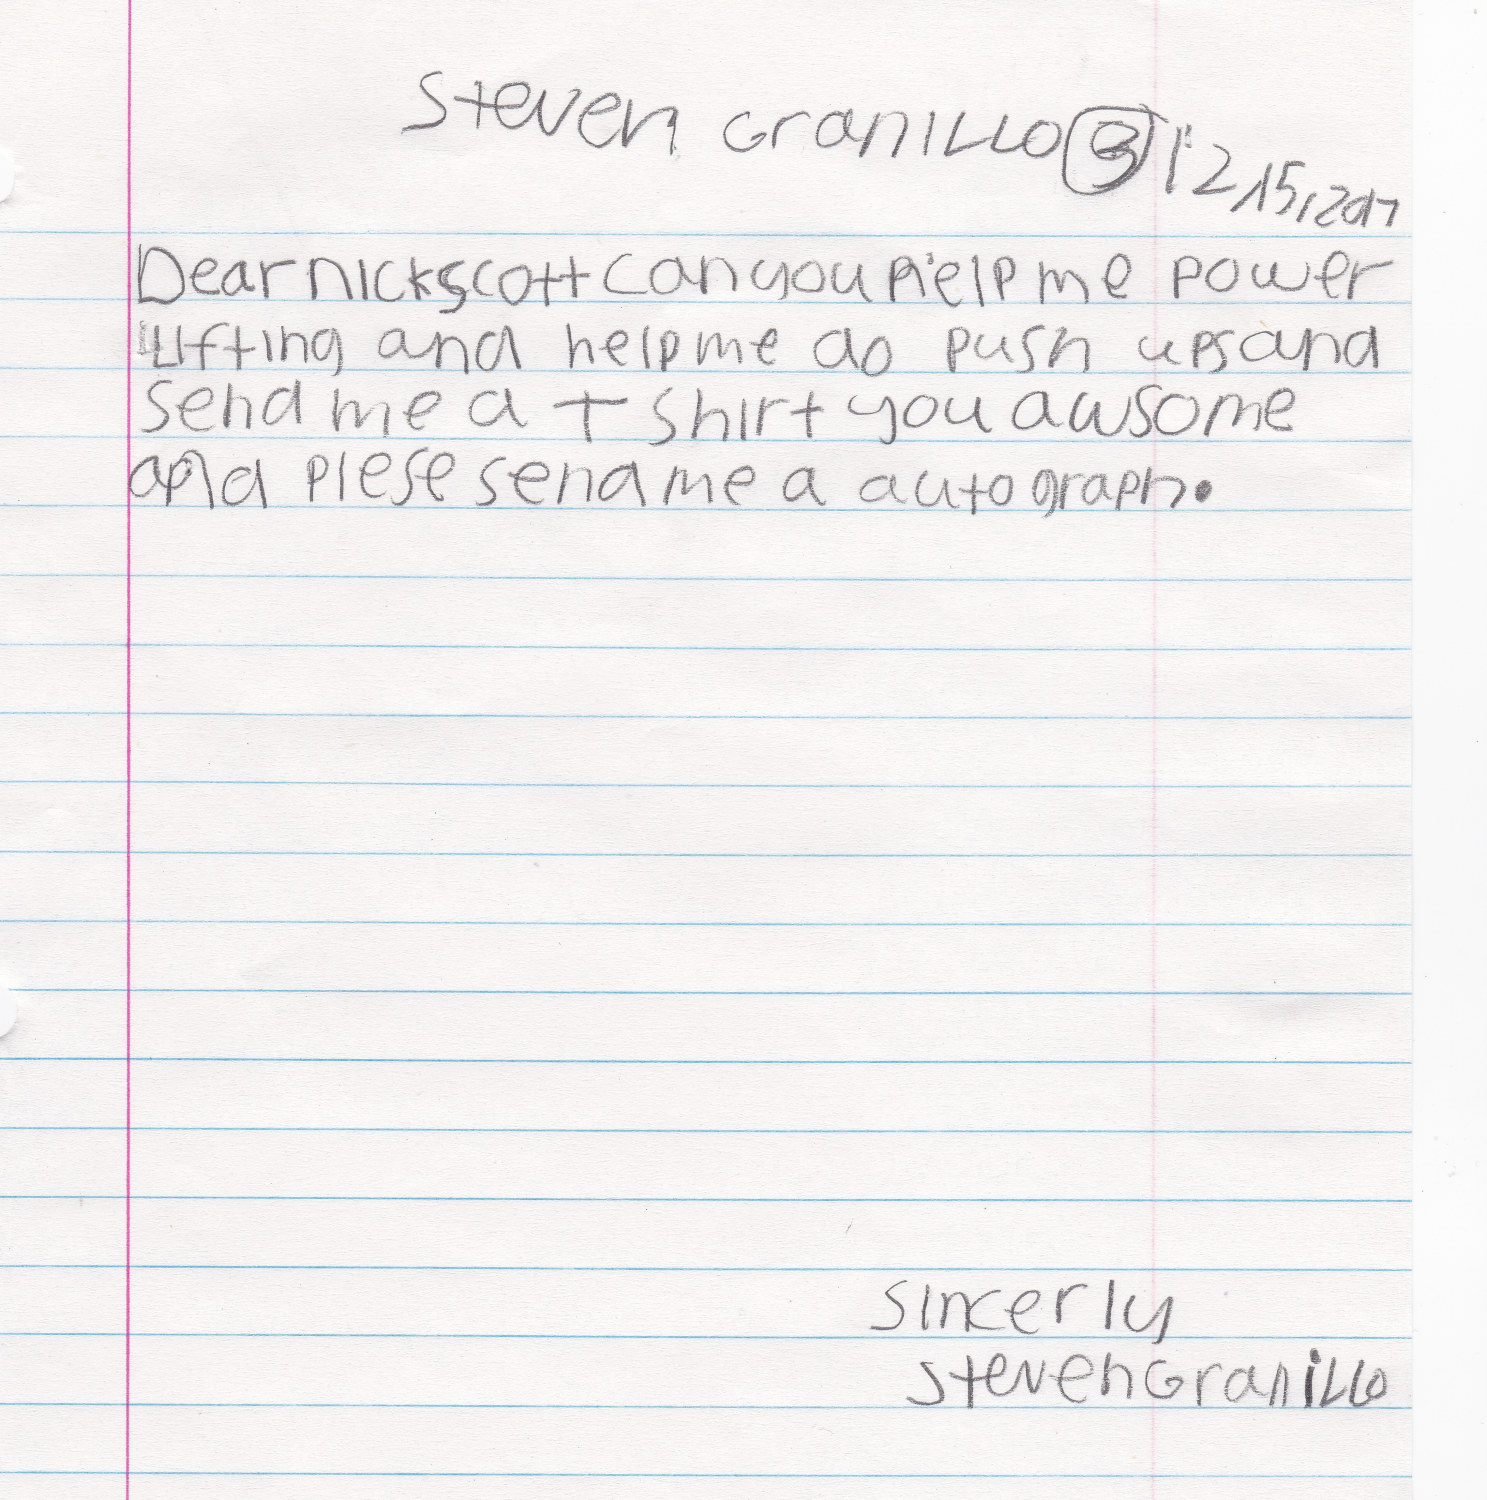 Steven Granillo 3 12,15,2017
Dear nick scott can you help me power
lifting and help me do push ups and
send me a T shirt you awsome
and plese send me a autograph.
sincerly
steven Granillo